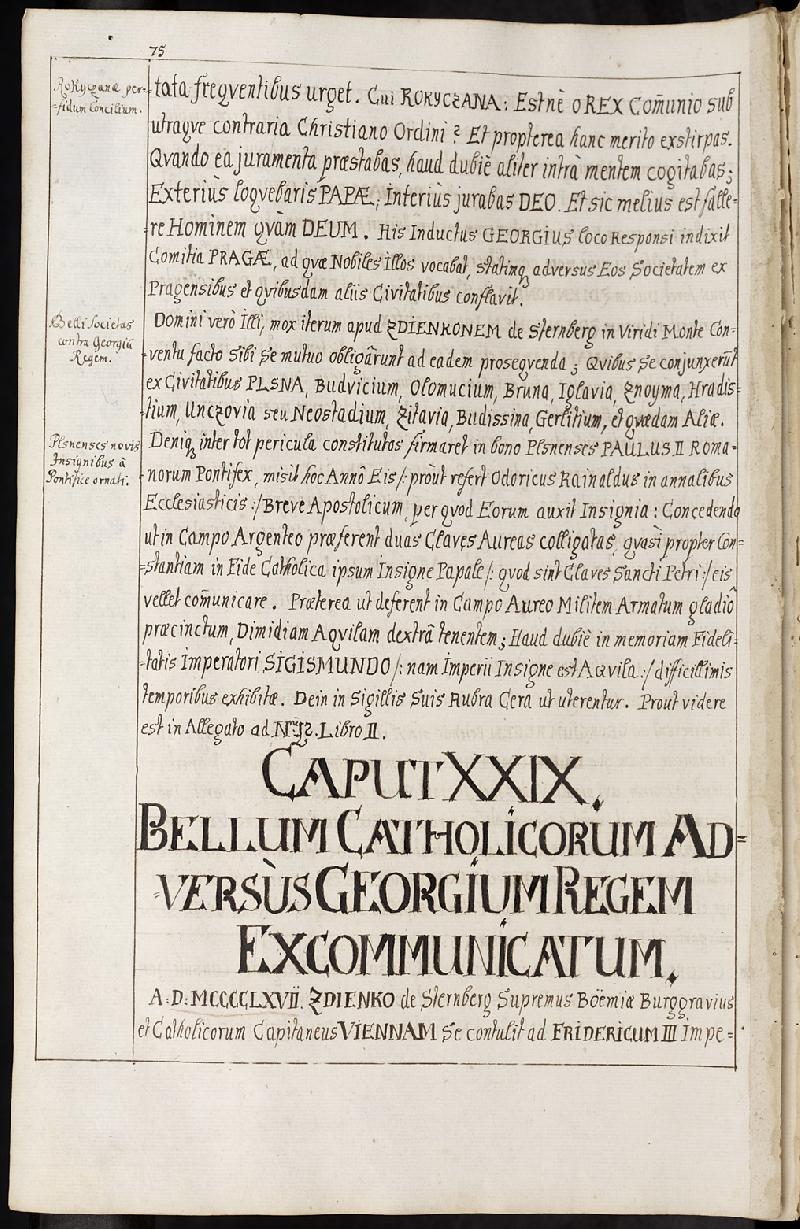 75
Rokyczanæ per-
-fidum Concilium.
tata freqventibus urget. Cui ROKYCZANA: Estnè o REX Com̄unio sub
utraqve contraria Christiano Ordini? Et propterea hanc merito exstirpas.
Qvando ea juramenta præstabas, haud dubiè aliter intrà mentem cogitabas;
Exteriùs loqvebaris PAPÆ; Interiùs jurabas DEO. Et sic melius est falle-
re Hominem qvàm DEUM. His Inductus GEORGIUS loco Responsi indixit
Comitia PRAGÆ, ad qvæ Nobiles Illos vocabat, statimq₃ adversus Eos Societatem ex
Pragensibus et qvibusdam aliis Civitatibus conflavit.
Belli Societas
contra Georgiū
Regem.
Domini verò Illi, mox iterum apud ZDIENKONEM de Sternberg in Viridi Monte Con-
ventu facto sibi se mutuo obligârunt ad eadem proseqvenda; Qvibus se conjunxerūt
ex Civitatibus PLSNA, Budvicium, Olomucium, Bruna, Iglavia, Znoyma, Hradis-
tium, Unczovia seu Neostadium, Zitavia, Budissina, Gerlitium, et qvædam Aliæ.
Plsnenses novis
Insignibus à
Pontifice ornati.
Deniq₃ inter tot pericula constitutos firmaret in bono Plsnenses PAULUS II Roma-
norum Pontifex, misit hoc Annô Eis /: proùt refert Odoricus Rainaldus in annalibus
Ecclesiasticis :/ Breve Apostolicum, per qvod Eorum auxit Insignia: Concedendo
ut in Campo Argenteo præferent duas Claves Aureas colligatas, qvasi propter Con-
-stantiam in Fide Catholica ipsum Insigne Papale /: qvod sint Claves Sancti Petri :/ eis
vellet com̄unicare. Præterea ut deferent in Campo Aureo Militem Armatum gladiô
præcinctum, Dimidiam Aqvilam dextrâ tenentem; Haud dubiè in memoriam Fideli-
-tatis Imperatori SIGISMUNDO /: nam Imperii Insigne est Aqvila :/ difficillimis
temporibus exhibitæ. Dein in Sigillis Suis Rubra Cera ut uterentur. Prout videre
est in Allegato ad Libro II.
CAPUT XXIX.
BELLUM CATHOLICORUM AD-
-VERSÙS GEORGIUM REGEM
EXCOMMUNICATUM.
A: D: MCCCCLXVII. ZDIENKO de Sternberg Supremus Böemiæ Burggravius
et Catholicorum Capitaneus VIENNAM se contulit ad FRIDERICUM III Impe-